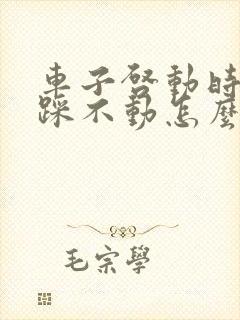 車子啓動時
踩不動怎麼
毛宗學